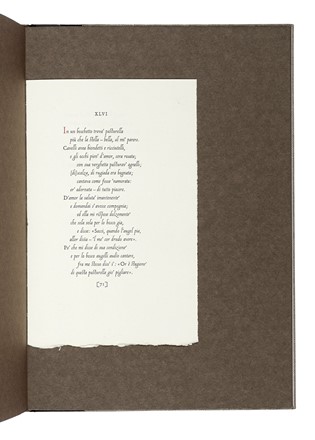 XLVI
In un boschetto trova' pasturella
più che la stella – bella, al mi' parere.
Cavelli avea biondetti e ricciutelli,
e gli occhi pien' d'amor, cera rosata;
con sua verghetta pasturav' agnelli;
[di]scalza, di rugiada era bagnata;
cantava come fosse 'namorata:
er' adornata – di tutto piacere.
D'amor la saluta' imantenente
e domandai s'avesse compagnia;
ed ella mi rispose dolzemente
che sola sola per lo bosco gia,
e disse: «Sacci, quando l'augel pia,
allor disïa – 'l me' cor drudo avere».
Po' che mi disse di sua condizione
e per lo bosco augelli audìo cantare,
fra me stesso diss' i': «Or è stagione
di questa pasturella gio' pigliare».
[71]